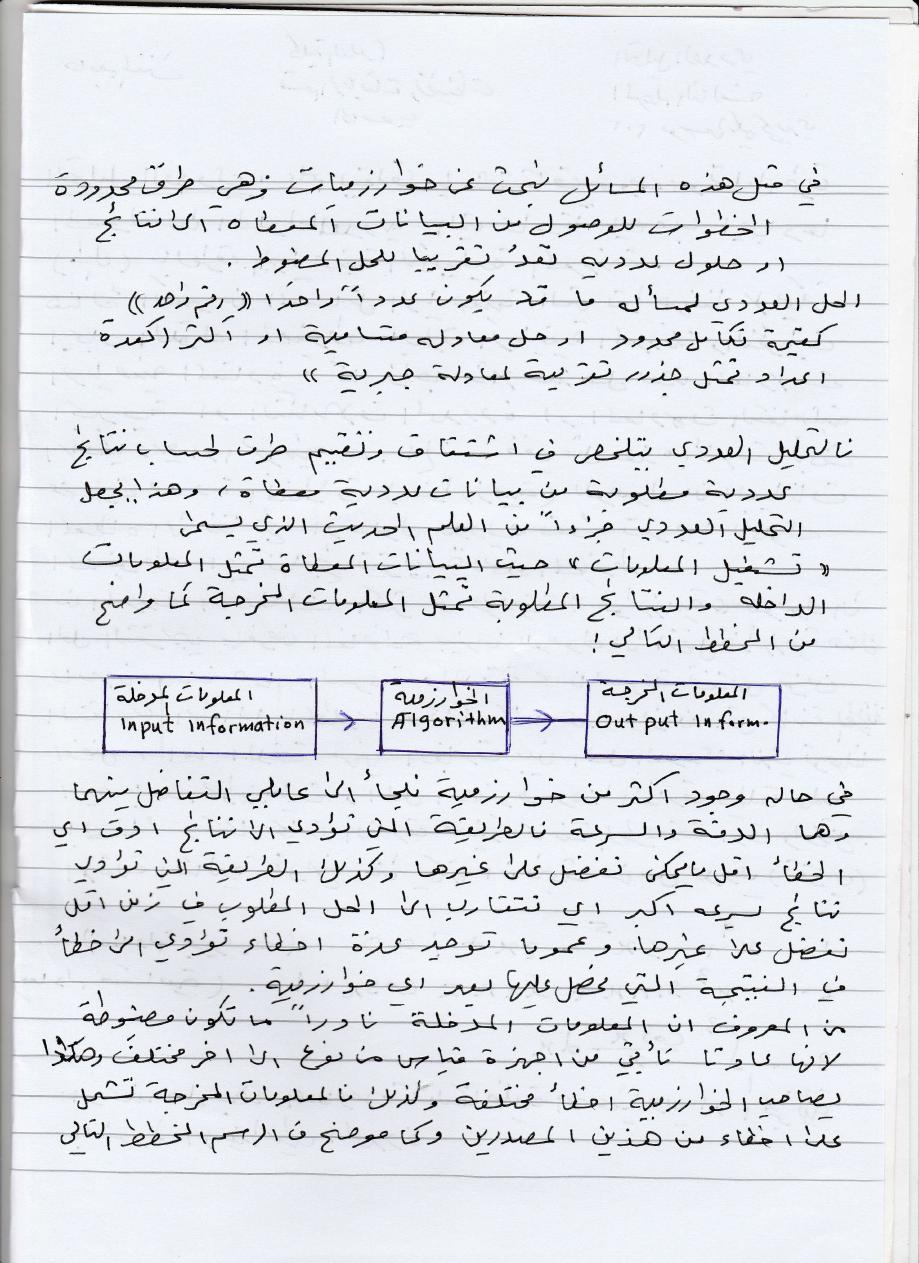 في مثل هذه المسائل نبحث عن خوارزميات وهي طرق محدودة
الخطوات للوصول من البيانات المعطاه الى نتائج
او حلول عدديه تعدُ تقريبا للحل المضبوط .
الحل العددي لمسأله ما قد يكون عدداً واحدا ((رقم واحد))
كقيمة تكامل محدود او حل معادله متسامية او اكثر (كعدة
اعداد تمثل جذور تقريبية لمعادلة جبرية ))
فالتحليل العددي يتلخص في اشتقاق وتقييم طرق لحساب نتائج
عددية مطلوبة من بيانات عددية معطاة ، وهذا يجعل
التحليل العددي جزءاً من العلم الحديث الذي يسمى
" تشغيل المعلومات " حيث البيانات المعطاة تمثل المعلومات
الداخله والنتائج المطلوبة تمثل المعلومات المخرجة كما واضح
من المخطط التالي :
المعلومات المدخلة الخوارزمية المعلومات المخرجة
Input Information Algorithm Output Inform.
في حاله وجود اكثر من خوارزمية نلجأ الى عاملي التفاضل بينهما
وهما الدقة والسرعة فالطريقة التي تؤدي الى نتائج ادق اي
الخطأ اقل مايمكن تفضل على غيرها وكذلك الطريقة التي تؤدي
نتائج بسرعه اكبر اي تتقارب الى الحل المطلوب في زمن اقل
تفضل على غيرها، وعموما توجد عدة اخطاء تؤدي الى خطأ
في النتيجة التي نحصل عليها بعد اي خوارزمية .
من المعروف ان المعلومات المدخلة نادراً ما تكون مضبوطة
لانها عادتا تأتي من اجهزة قياس من نوع الى اخر مختلف وهكذا
يصاحب الخوارزمية اخطأ مختلفة وكذلك فالمعلومات المخرجة تشمل
على اخطاء من هذين المصدرين وكما موضح في الرسم المخطط التالي